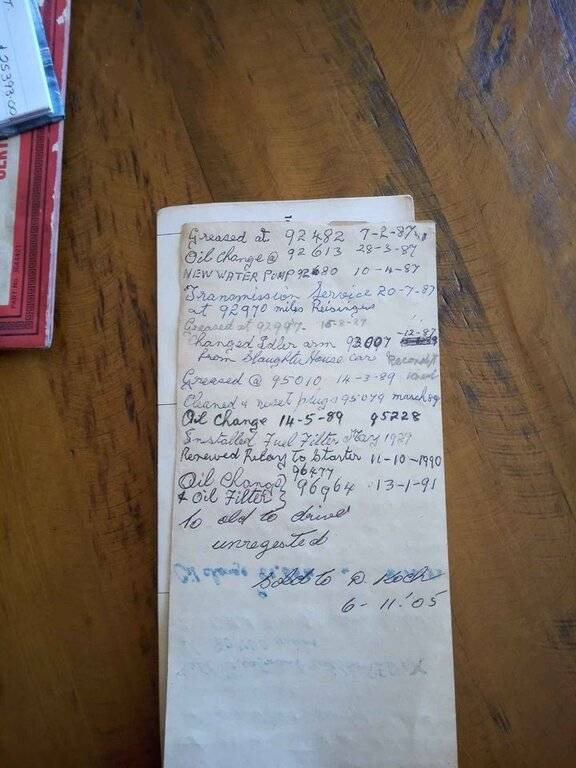 $25393.00
CERT
PART No. 3644421
Greased at 92482 7-2-87
Oil Change @ 92613 28-3-87
NEW WATER PUMP 92680 10-4-87
Transmission Service 20-7-87
at 92970 miles Reisingers
Greased at 92997. 15-8-87
Changed Idler arm 93007 -12-87
from Slaughter House car
Greased @ 95010 14-3-89
Cleaned & reset plugs 95079 march 89
Oil Change 14-5-89 95228
Installed Fuel Filter May 1989
Renewed Relay To Starter 11-10-1990
96477
Oil Change } 96964 13-1-91
& Oil Filter }
To old to drive
unregested
Oil change
Sold to D. Koch
6-11-'05